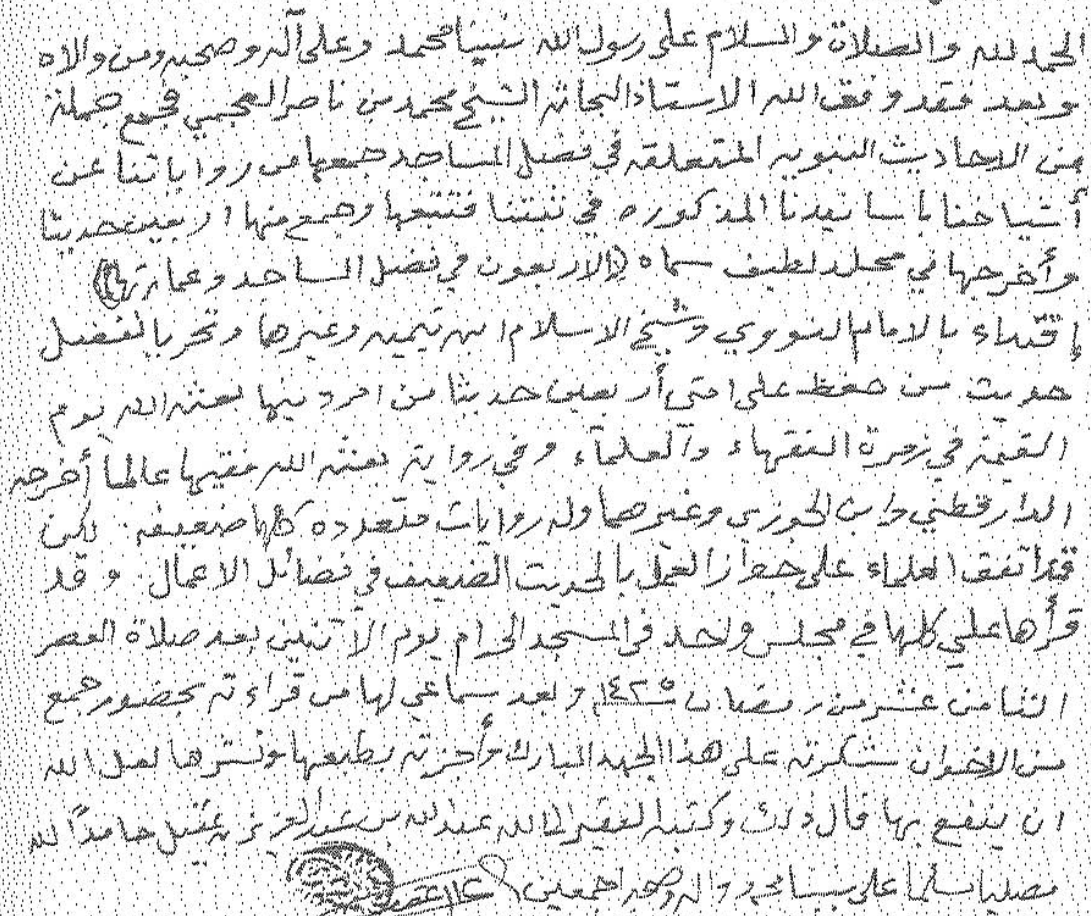 الحمد لله والصلاة والسلام على رسول الله نبينا محمد وعلى آله وصحبه ومن والاه
وبعد فقد وفق الله الاستاذ البحاثه الشيخ محمد بن ناصر العجمي فجمع جملة
من الاحاديث النبويه المتعلقه في فضل المساجد جمعها من رواياتنا عن
أشياخنا بأسانيدنا المذكوره في ثبتنا فتتبعها وجمع منها اربعين حديثا
وأخرجها في مجلد لطيف سماه (الاربعون في فضل المساجد وعمارتها)
إقتداء بالامام النووي وشيخ الاسلام ابن تيميه وغيرها وتحريا لفضل
حديث من حفظ على امتي أربعين حديثا من امر دينها بعثه الله يوم
القيمة في زمرة الفقهاء والعلماء وفي رواية بعثه الله فقيها عالما أخرجه
الدارقطني وابن الجوزي وغيرهما وله روايات متعدده كلها ضعيفه لكن
قد اتفق العلماء على جواز العمل بالحديث الضعيف في فضائل الاعمال وقد
قرأها علي كلها في مجلس واحد في المسجد الحرام يوم الاثنين بعد صلاة العصر
الثامن عشر من رمضان ١٤٢٥ وبعد سماعي لها من قراءته بحضور جمع
من الاخوان شكرته على هذا الجهد المبارك وأجزته بطبعها ونشرها لعل الله
ان ينفع بها قال ذلك وكتبه الفقير الى الله عبدالله بن عبدالعزيز بن عقيل حامدا لله
مصليا مسلما على نبينا محمد واله وصحبه اجمعين